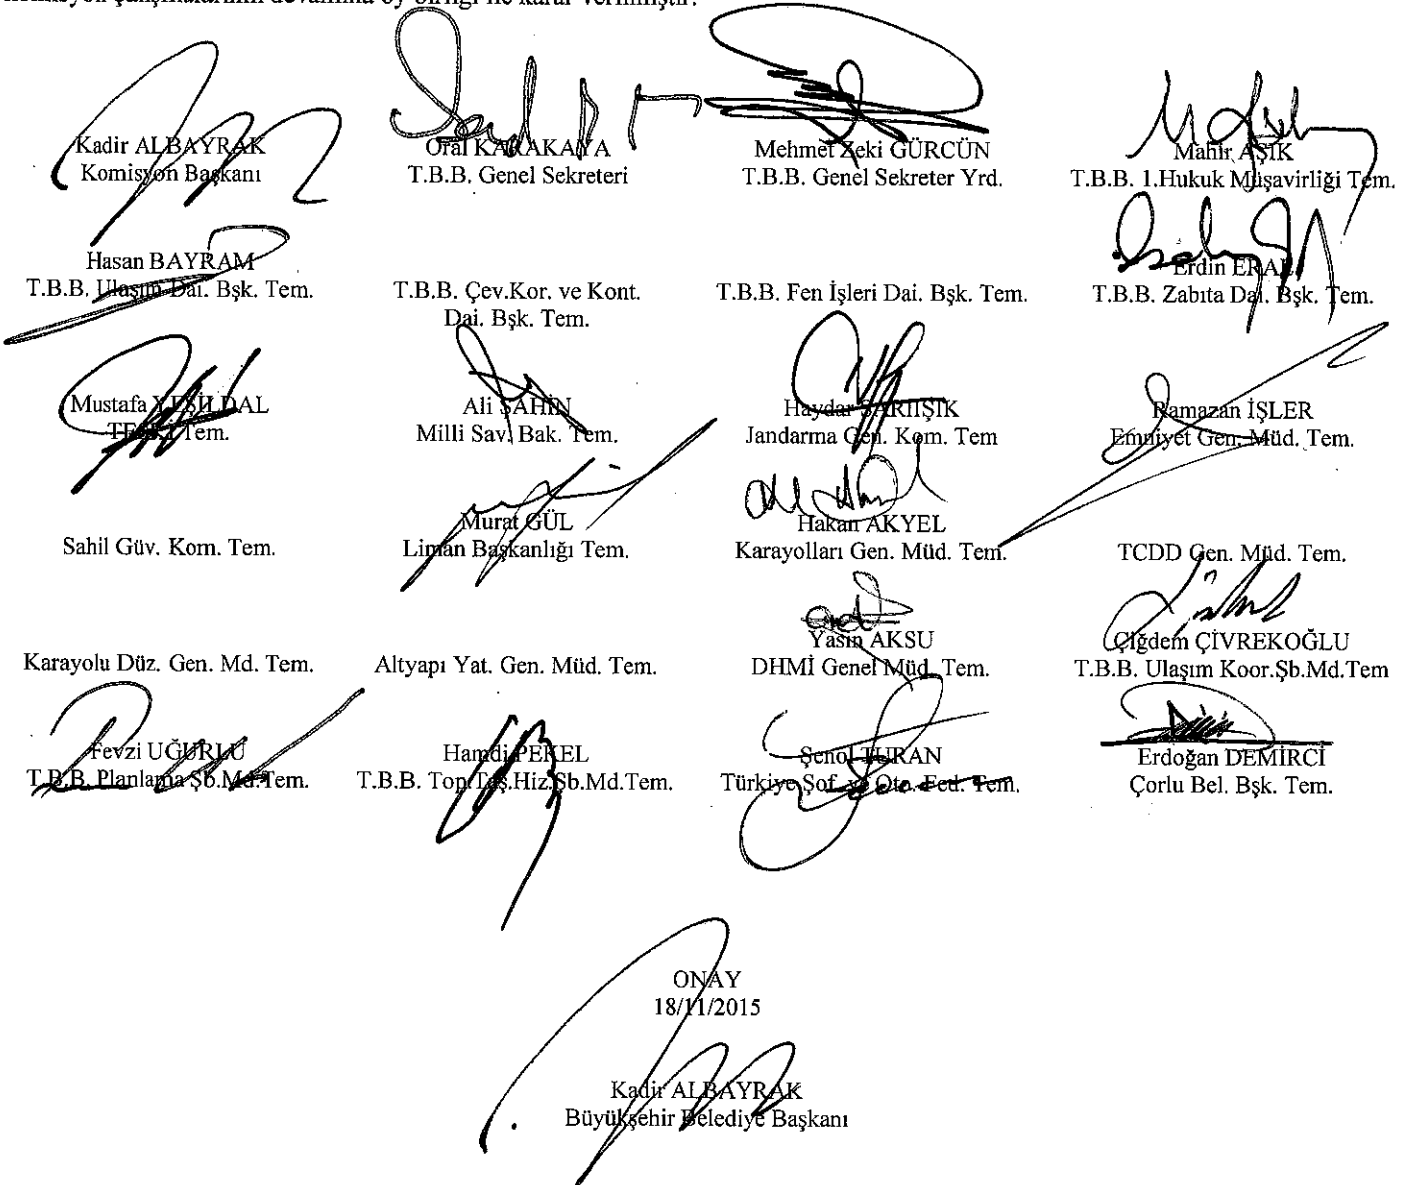 komisyon çalışmalarının devamına oy birliği ile karar verilmiştir.
Kadir ALBAYRAK
Komisyon Başkanı
Oral KARAKAYA
T.B.B. Genel Sekreteri
Mehmet Zeki GÜRCÜN
T.B.B. Genel Sekreter Yrd.
Mahir AŞIK
T.B.B. 1.Hukuk Müşavirliği Tem.
Hasan BAYRAM
T.B.B. Ulaşım Dai. Bşk. Tem.
T.B.B. Çev.Kor. ve Kont.
Dai. Bşk. Tem.
T.B.B. Fen İşleri Dai. Bşk. Tem.
Erdin ERAL
T.B.B. Zabıta Dai. Bşk. Tem.
Mustafa YEŞİLDAL
TESKİ Tem.
Ali ŞAHİN
Milli Sav. Bak. Tem.
Haydar SARIIŞIK
Jandarma Gen. Kom. Tem
Ramazan İŞLER
Emniyet Gen. Müd. Tem.
Sahil Güv. Kom. Tem.
Murat GÜL
Liman Başkanlığı Tem.
Hakan AKYEL
Karayolları Gen. Müd. Tem.
TCDD Gen. Müd. Tem.
Karayolu Düz. Gen. Md. Tem.
Altyapı Yat. Gen. Müd. Tem.
Yasin AKSU
DHMİ Genel Müd. Tem.
Çiğdem ÇİVREKOĞLU
T.B.B. Ulaşım Koor.Şb.Md.Tem
Fevzi UĞURLU
T.B.B. Planlama Şb.Md.Tem.
Hamdi PEKEL
T.B.B. Top.Taş.Hiz.Şb.Md.Tem.
Şenol TURAN
Türkiye Şof. ve Oto. Fed. Tem.
Erdoğan DEMİRCİ
Çorlu Bel. Bşk. Tem.
ONAY
18/11/2015
Kadir ALBAYRAK
Büyükşehir Belediye Başkanı